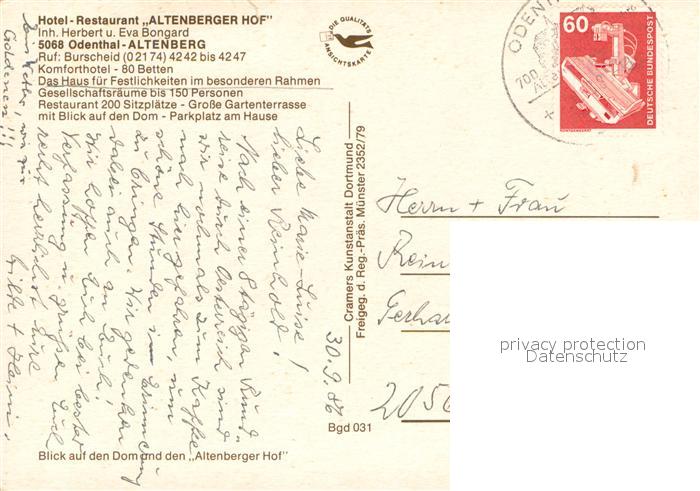 Hotel-Restaurant „ALTENBERGER HOF"
Inh. Herbert u. Eva Bongard
5068 Odenthal-ALTENBERG
Ruf: Burscheid (02174) 4242 bis 4247
Komforthotel - 80 Betten
Das Haus für Festlichkeiten im besonderen Rahmen
Gesellschaftsräume bis 150 Personen
Restaurant 200 Sitzplätze - Große Gartenterrasse
mit Blick auf den Dom - Parkplatz am Hause
DIE QUALITÄTS
ANSICHTSKARTE
ODENT
700
60
DEUTSCHE BUNDESPOST
RÖNTGENGERÄT
30.9.86
Liebe Marie-Luise!
lieber Reinhold!
Nach einer 8tägigen Rund-
reise durch Oesterreich sind
wir nochmals zum Kaffee
nach hier gefahren, um
schöne Stunden in Erinnerung
zu bringen. Wir gedenken
dabei auch an Euch!
Wir hoffen Euch bei bester
Verfassung u. grüßen Euch
recht herzlichst Eure
Hilde + Heini.
wie zur
Goldenen!!!
Cramers Kunstanstalt Dortmund
Freigeg. d. Reg.-Präs. Münster 2352/79
Herrn + Frau
Rein
Gerha
205
privacy protection
Datenschutz
Bgd 031
Blick auf den Dom und den „Altenberger Hof"